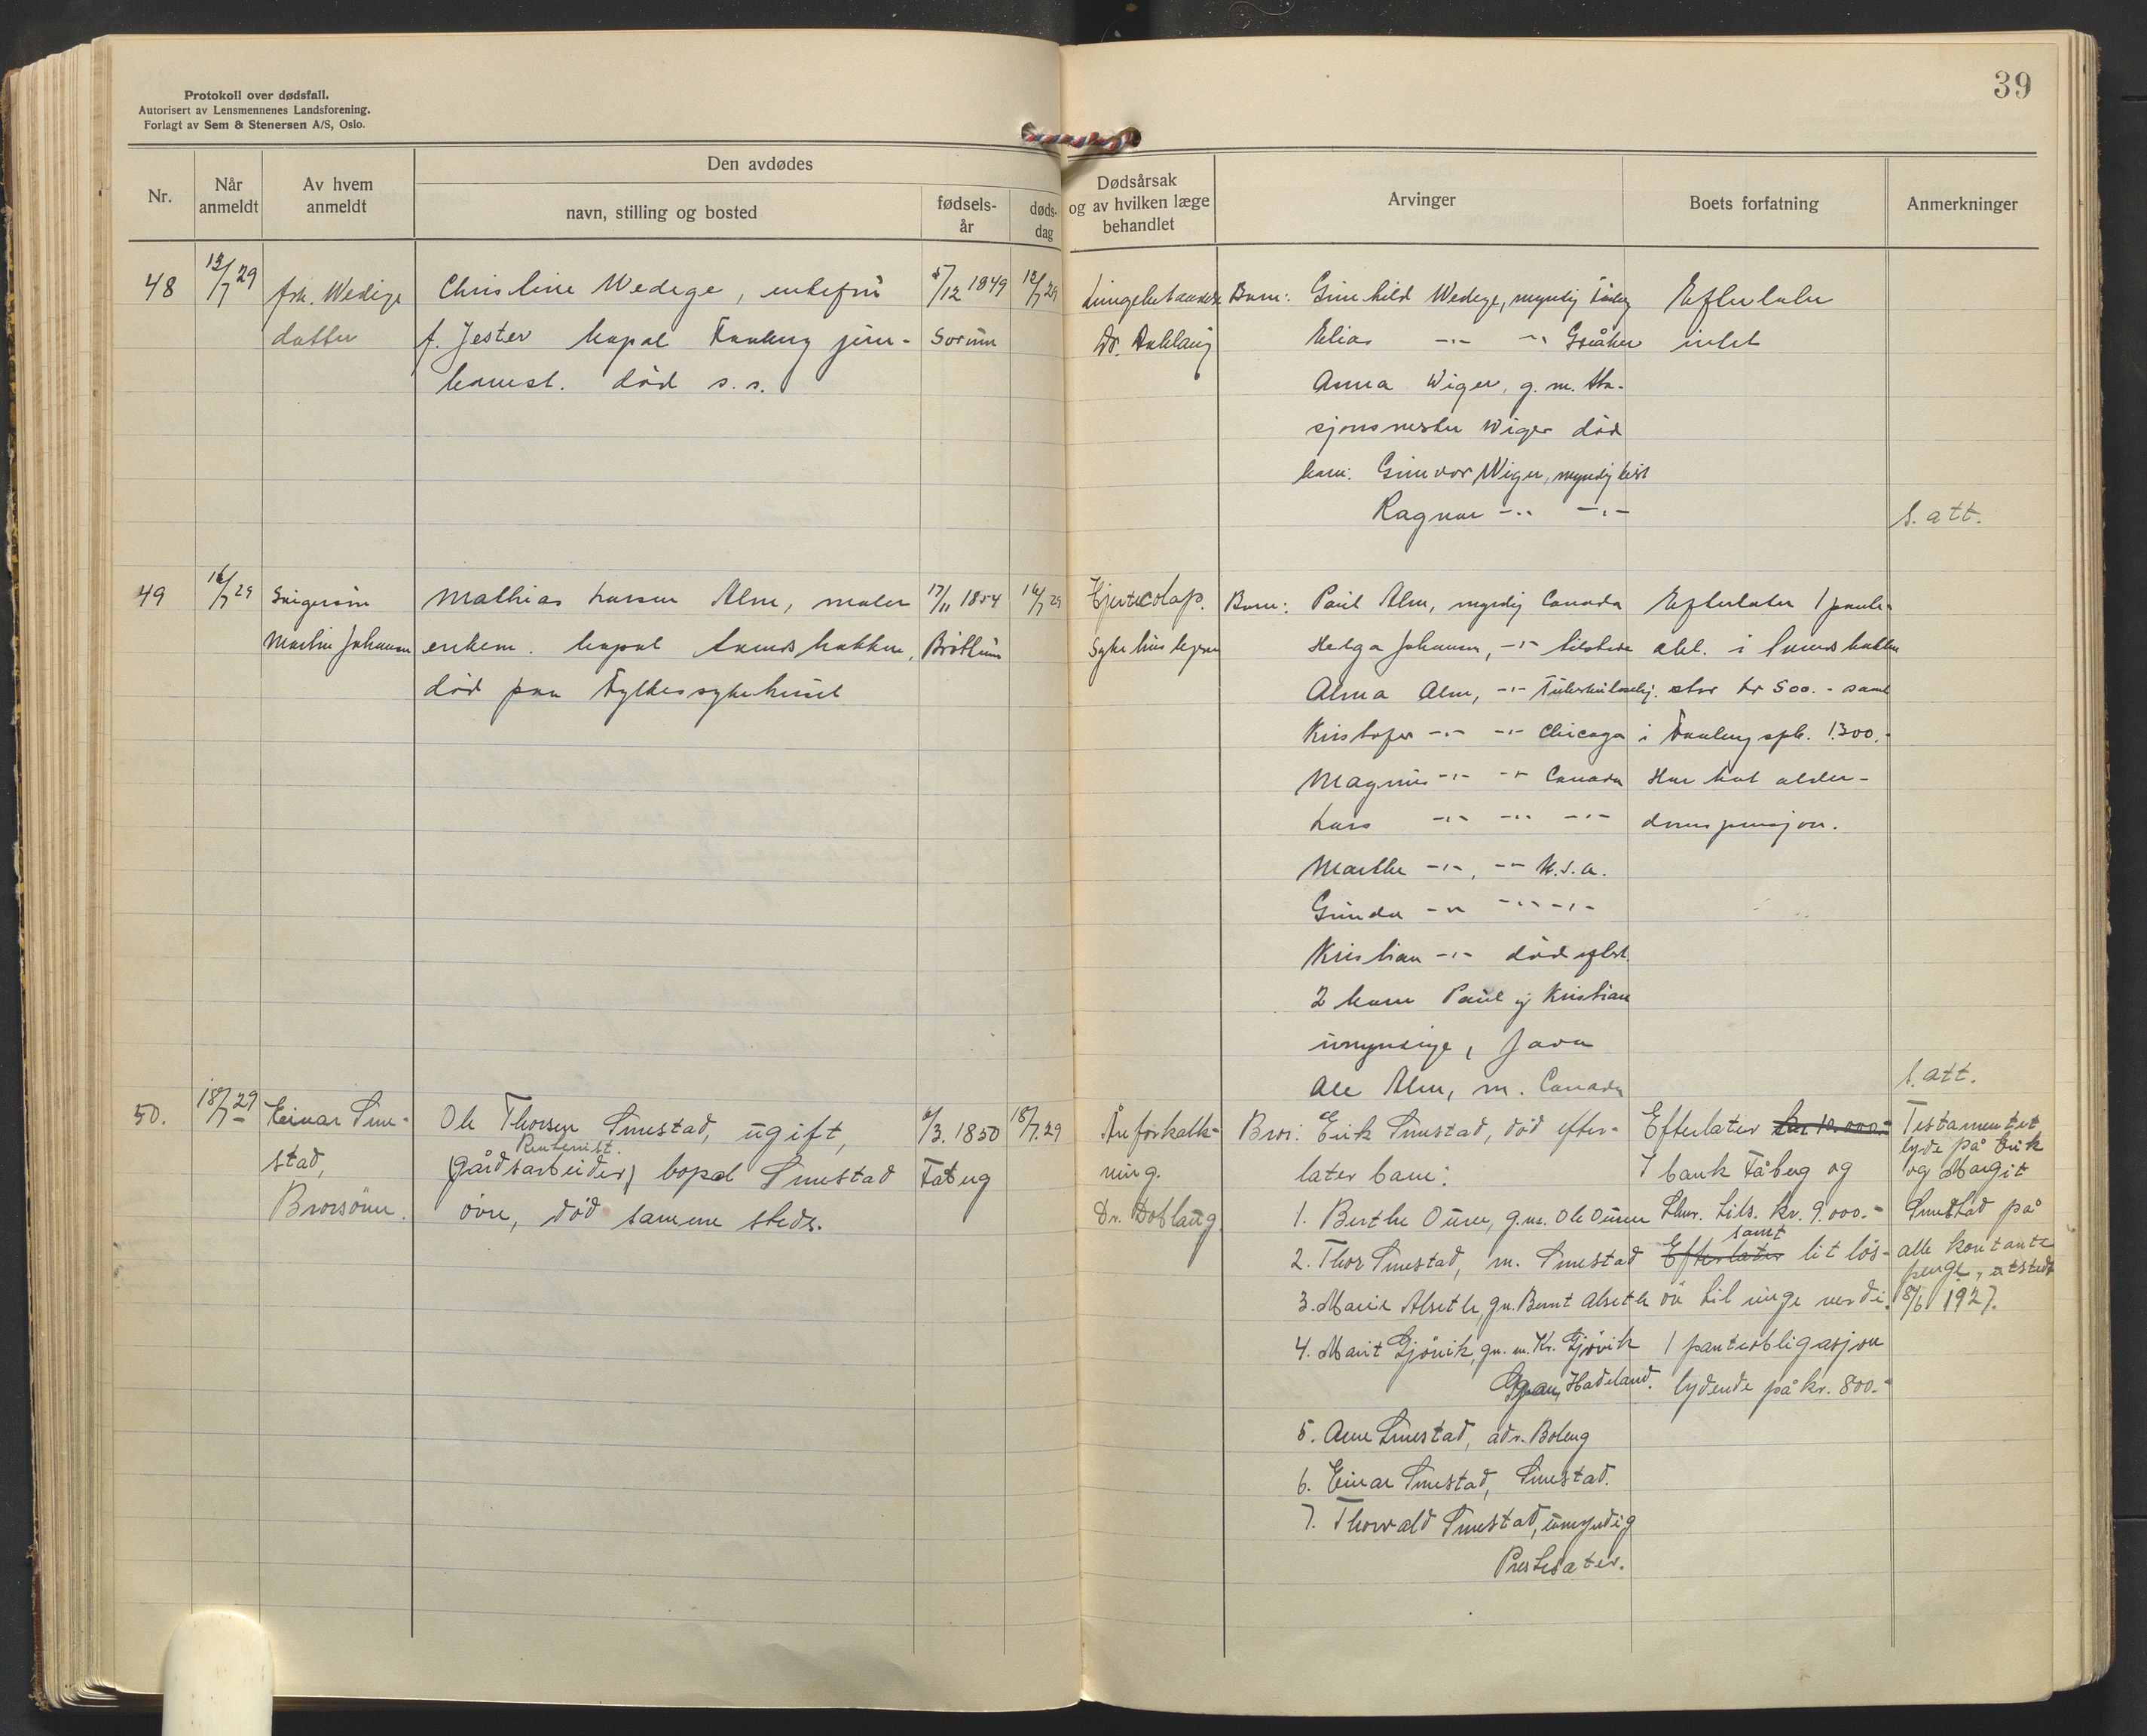 39
Protokoll over dødsfall.
Autorisert av Lensmennenes Landsforening.
Forlagt av Sem & Stenersen A/S, Oslo.
Nr.
Når anmeldt
Av hvem anmeldt
Den avdødes
navn, stilling og bosted
fødsels-år
døds-dag
Dødsårsak og av hvilken læge behandlet
Arvinger
Boets forfatning
Anmerkninger
48
12/7 29
frk. Wedege
datter
Christine Wedege, enkefru
f. Jester bopæl Faaberg jern-
banest. død s. s.
5/12 1849
Sorum
12/7 29
Lungebetændelse
Dr. Doblaug
Barn: Gunhild Wedege, myndig Faaberg
Elias -"- -"- Gråker
Anna Wiger, g. m. sta-
sjonsmester Wiger død
barn: Gunvor Wiger, myndig
Ragnar -"- -"-
Efterlater
intet
s. att.
49
16/7 29
Svigersøn
Martin Johansen
Mathias Larsen Alm, maler
enkem. bopæl Lundsbakken,
død paa Fylkessykehuset
17/11 1854
Brøttum
14/7 29
Hjerteslap.
Sykehuslegen
Barn: Paul Alm, myndig Canada
Helga Johansen, -"- tilstede
Alma Alm, -"- Tuberkulosehj.
Kristofer -"- -"- Chicago
Magnus -"- -"- Canada
Lars -"- -"- -"-
Marthe -"-, -"- U.S.A.
Gunda -"- -"- -"-
Kristian -"- død efterl.
2 barn Paul og Kristian
umyndige, Java
Ole Alm, m. Canada
Efterlater 1 pante-
obl. i Lundsbakken
stor kr 500.- samt
i Faaberg spb. 1300.-
Har hat alder-
domspensjon.
s. att.
50.
18/7 29
Einar Smestad,
Brorsönn.
Ole Thorsen Smestad, ugift,
Rentenist.
(gårdsarbeider) bopæl Smestad
övre, död samme steds.
/3. 1850
Fåberg
18/7. 29
Åreforkalk-
ning.
Dr. Doblaug
Bror: Erik Smestad, död efter-
later barn:
1. Berthe Ouren, g.m. Ole Ouren
2. Thor Smestad, m. Smestad
3. Marie Alseth, g.m. Bernt Alseth
4. Marit Gjövik, g.m. Kr. Gjövik
Gran, Hadeland.
5. Arne Smestad, adr. Boleng
6. Einar Smestad, Smestad.
7. Thorvald Smestad, umyndig
Prestesæter.
Efterlater kr 10.000.-
I bank Fåberg og
Lhmr. Lils. kr. 9.000.-
samt
Efterlater lit lös-
öre til ringe verdi.
1 panteobligasjon
lydende på kr. 800.-
Testamentet
lyde på Erik
og Margit
Smestad på
alle kontante
penge, utstedt
8/6 1927.